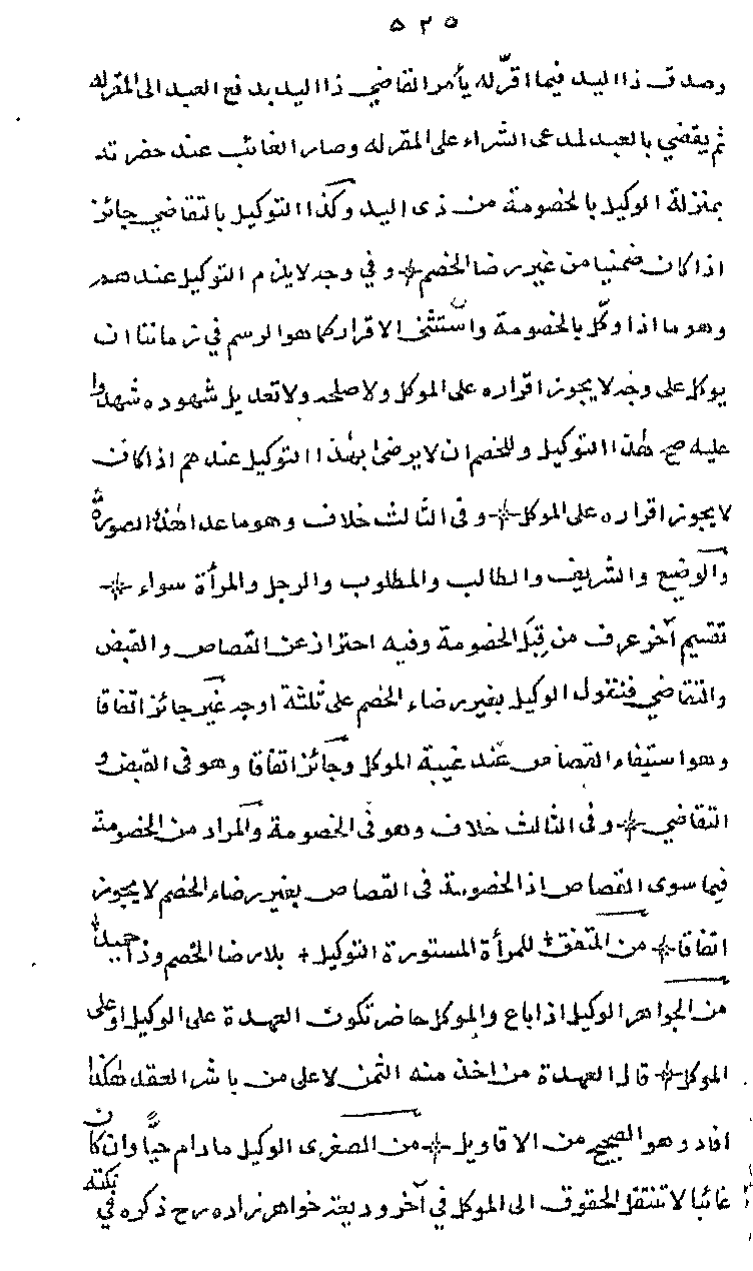 ٥٢٥
وصدق ذا اليد فيما اقرّ له يأمر القاضي ذا اليد بدفع العبد الى المقرله
ثم يقضي بالعبد لمدعى الشراء على المقرله وصار الغائب عند حضرته
بمنزلة الوكيل بالخصومة من ذى اليد وكذا التوكيل بالتقاضي جائز
اذا كان ضمنيا من غير رضا الخصم * و في وجه لا يلزم التوكيل عندهم
وهو ما اذا وكّل بالخصومة واستثنى الاقرار كما هو الرسم في زماننا ان
يوكل على وجه لا يجوز اقراره على الموكل ولا صلحه ولا تعديل شهوده شهدوا
عليه صح هذا التوكيل وللخصم ان لا يرضى بهذا التوكيل عندهم اذا كان
لا يجوز اقراره على الموكل * و فى الثالث خلاف وهو ما عدا هذه الصورة
والوضيع والشريف والطالب والمطلوب والرجل والمرأة سواء *
تقسيم آخر عرف من قبل الخصومة وفيه احتراز عن القصاص والقبض
والتقاضي فنقول الوكيل بغير رضاء الخصم على ثلثة اوجه غير جائز اتفاقا
وهو استيفاء القصاص عند غيبة الموكل وجائز اتفاقا وهو فى القبض و
التقاضي * و فى الثالث خلاف وهو فى الخصومة والمراد من الخصومة
فيما سوى القصاص اذ الخصومة فى القصاص بغير رضاء الخصم لا يجوز
اتفاقا * من المتفق للمرأة المستورة التوكيل + بلا رضا الخصم وذا جميل
من الجواهر الوكيل اذا باع والموكل حاضر تكون العهدة على الوكيل او على
الموكل * قال العهدة من اخذ منه الثمن لا على من باشر العقد هكذا
افاد وهو الصحيح من الاقاويل * من الصغرى الوكيل ما دام حيًّا وان كان
غائبا لا تنتقل الحقوق الى الموكل في آخر وديعة خواهر زاده رح ذكره في نكته